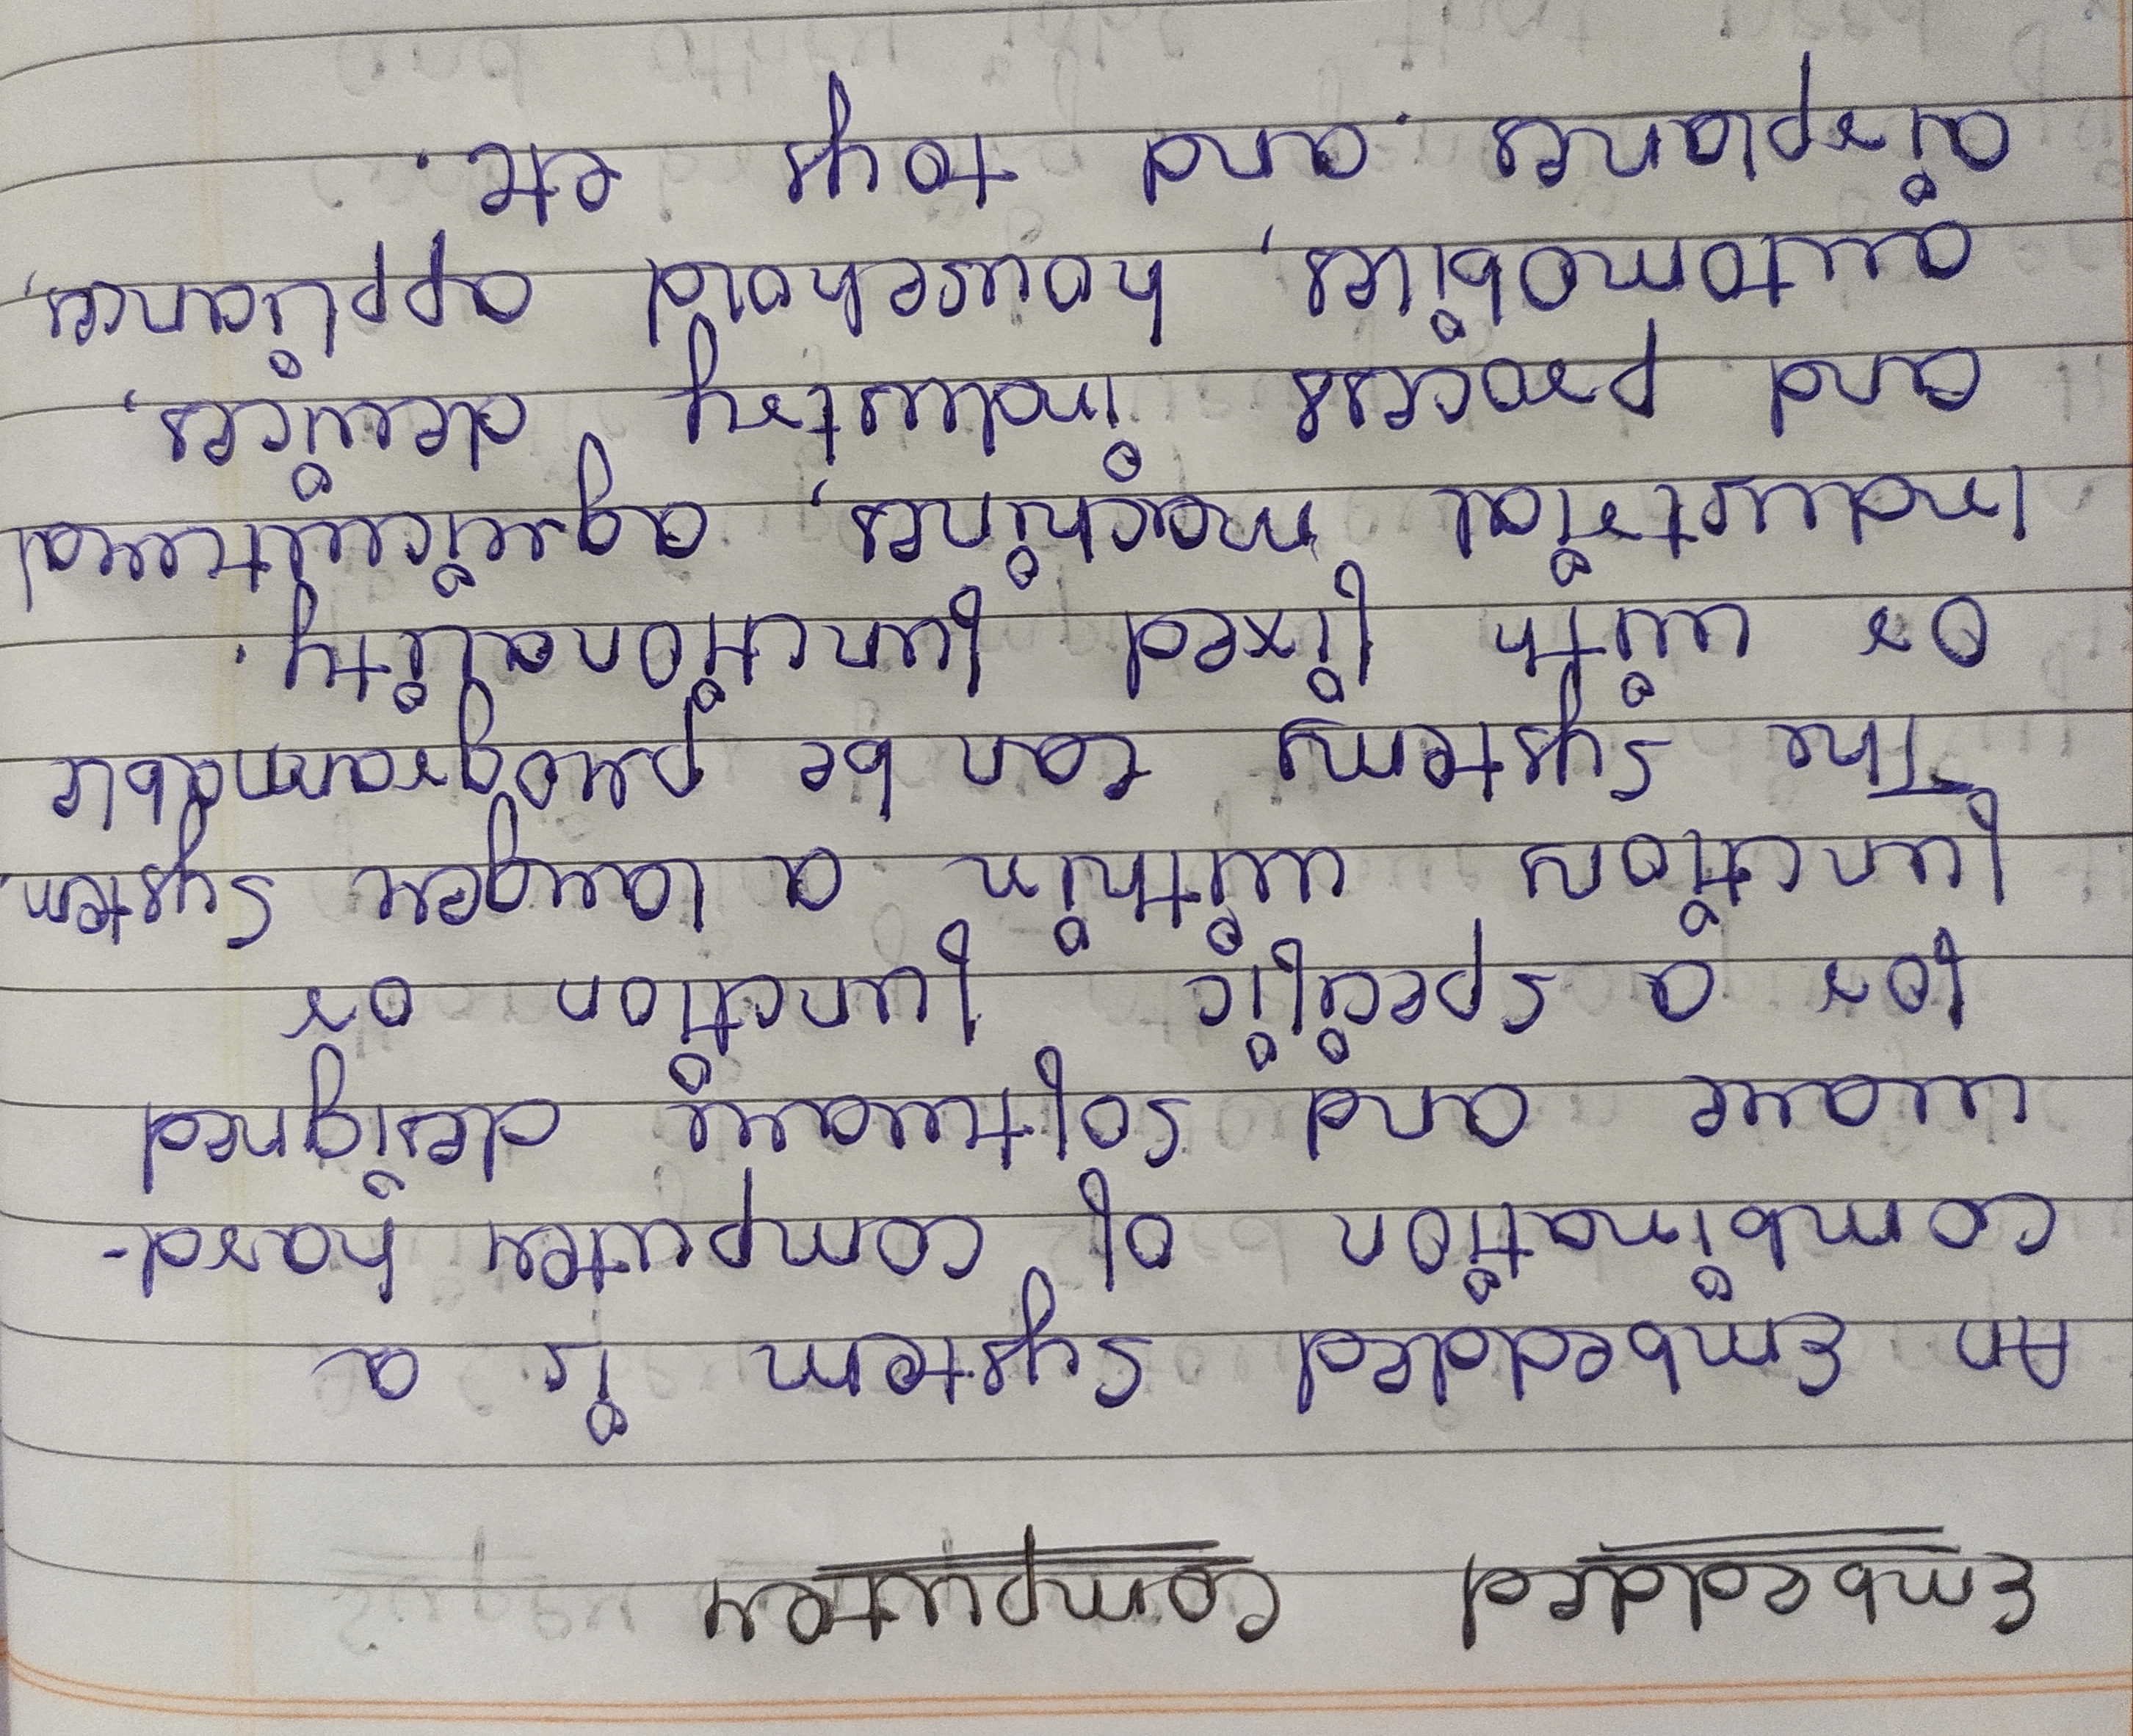 Embedded computer
An Embedded system is a
combination of computer hard-
ware and software designed
for a specific function or
function within a larger system.
The systems can be programmable
or with fixed functionality.
Industrial machines, agricultural
and process industry devices,
automobiles, household appliances,
airplanes and toys etc.